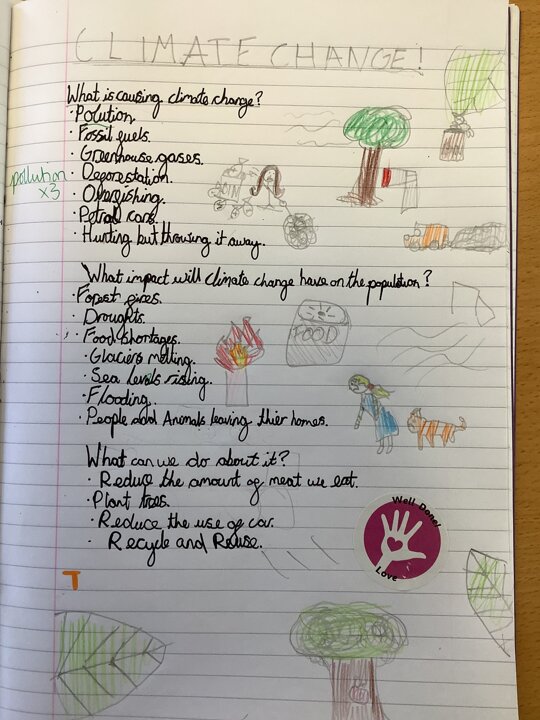 CLIMATE CHANGE!
What is causing climate change?
• Polution.
• Fossil fuels.
• Greenhouse gases.
pollution
x3
• Deforestation.
• Overfishing.
• Petrol cars.
• Hunting but throwing it away.
What impact will climate change have on the population?
• Forest fires.
• Droughts.
• Food shortages.
FOOD
• Glaciers melting.
• Sea levels rising.
• Flooding.
• People and Animals leaving thier homes.
What can we do about it?
• Reduce the amount of meat we eat.
• Plant trees.
• Reduce the use of car.
• Recycle and Reuse.
Well Done!
Love
T